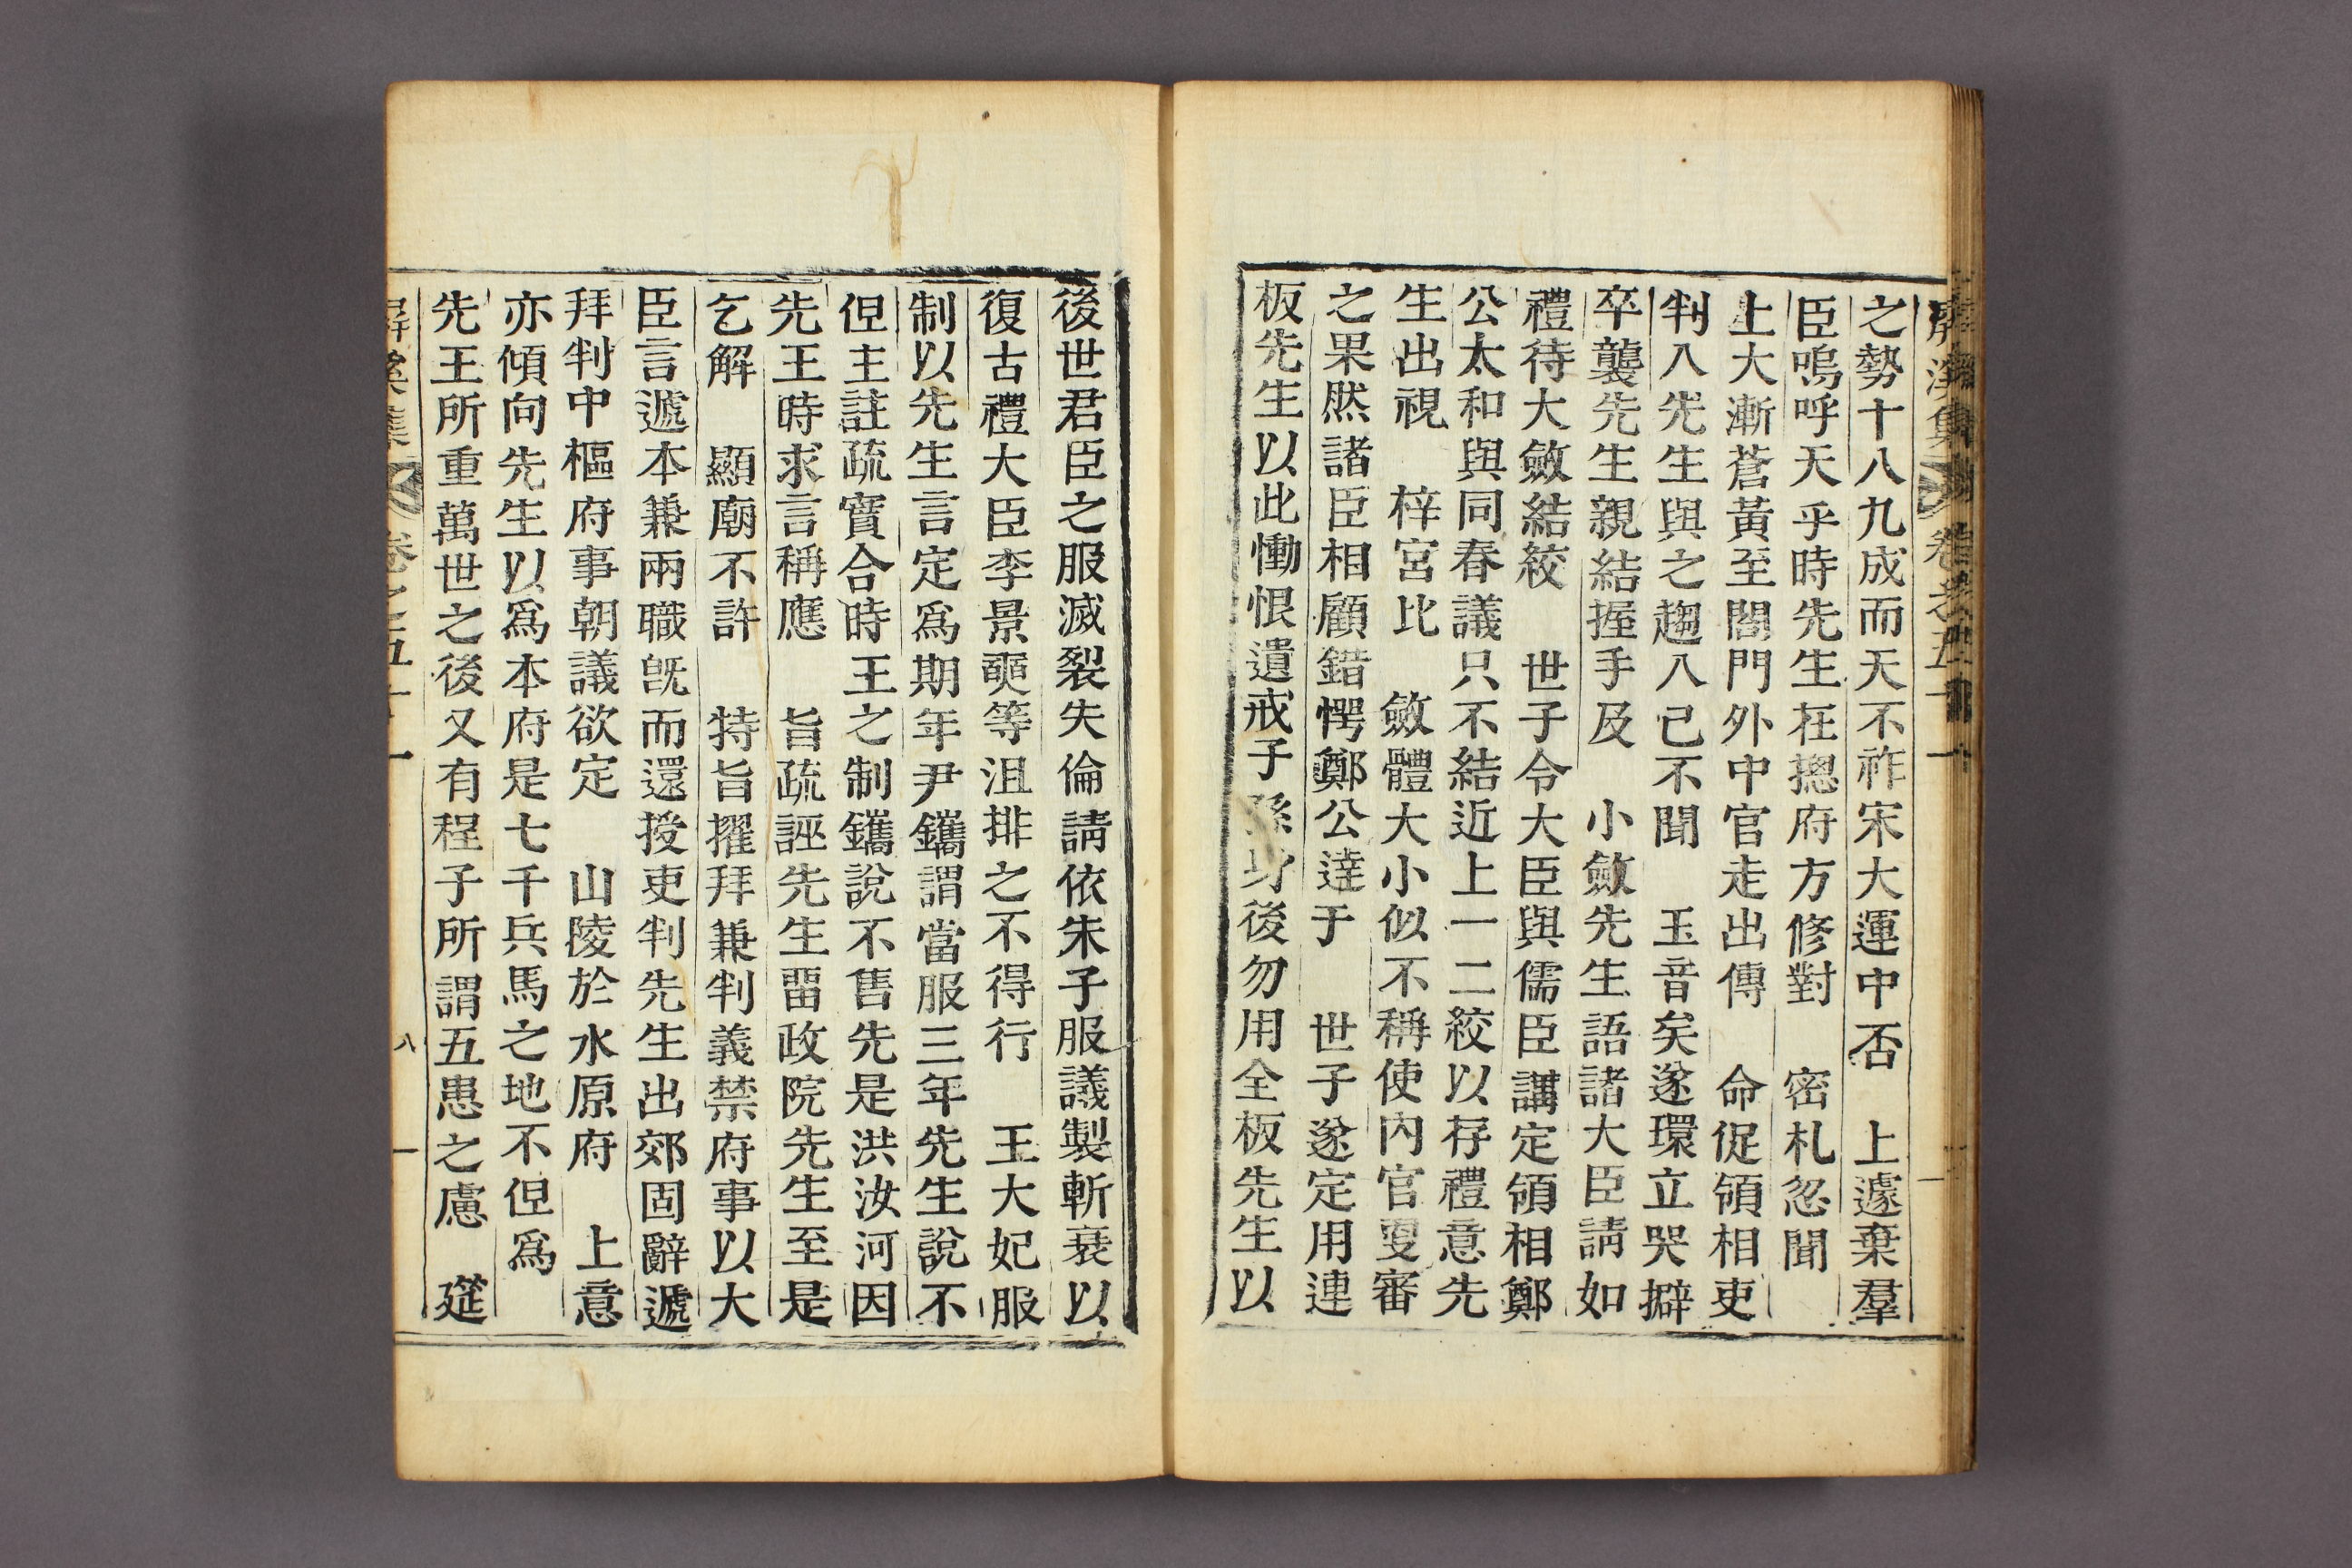 之勢十八九成而天不祚宋大運中否　上遽棄羣
臣嗚呼天乎時先生在摠府方修對　密札忽聞
上大漸蒼黃至閤門外中官走出傳　命促領相吏
判入先生與之趨入已不聞　玉音矣遂環立哭擗
卒襲先生親結握手及　小斂先生語諸大臣請如
禮待大斂結絞　世子令大臣與儒臣講定領相鄭
公太和與同春議只不結近上一二絞以存禮意先
生出視　梓宮比　斂體大小似不稱使內官更審
之果然諸臣相顧錯愕鄭公達于　世子遂定用連
板先生以此慟恨遺戒子孫身後勿用全板先生以
後世君臣之服滅裂失倫請依朱子服議製斬衰以
復古禮大臣李景奭等沮排之不得行　王大妃服
制以先生言定爲期年尹鑴謂當服三年先生說不
但主註疏實合時王之制鑴說不售先是洪汝河因
先王時求言稱應　旨疏誣先生留政院先生至是
乞解　顯廟不許　特旨擢拜兼判義禁府事以大
臣言遞本兼兩職旣而還授吏判先生出郊固辭遞
拜判中樞府事朝議欲定　山陵於水原府　上意
亦傾向先生以爲本府是七千兵馬之地不但爲
先王所重萬世之後又有程子所謂五患之慮　筵
卷之五十一
八